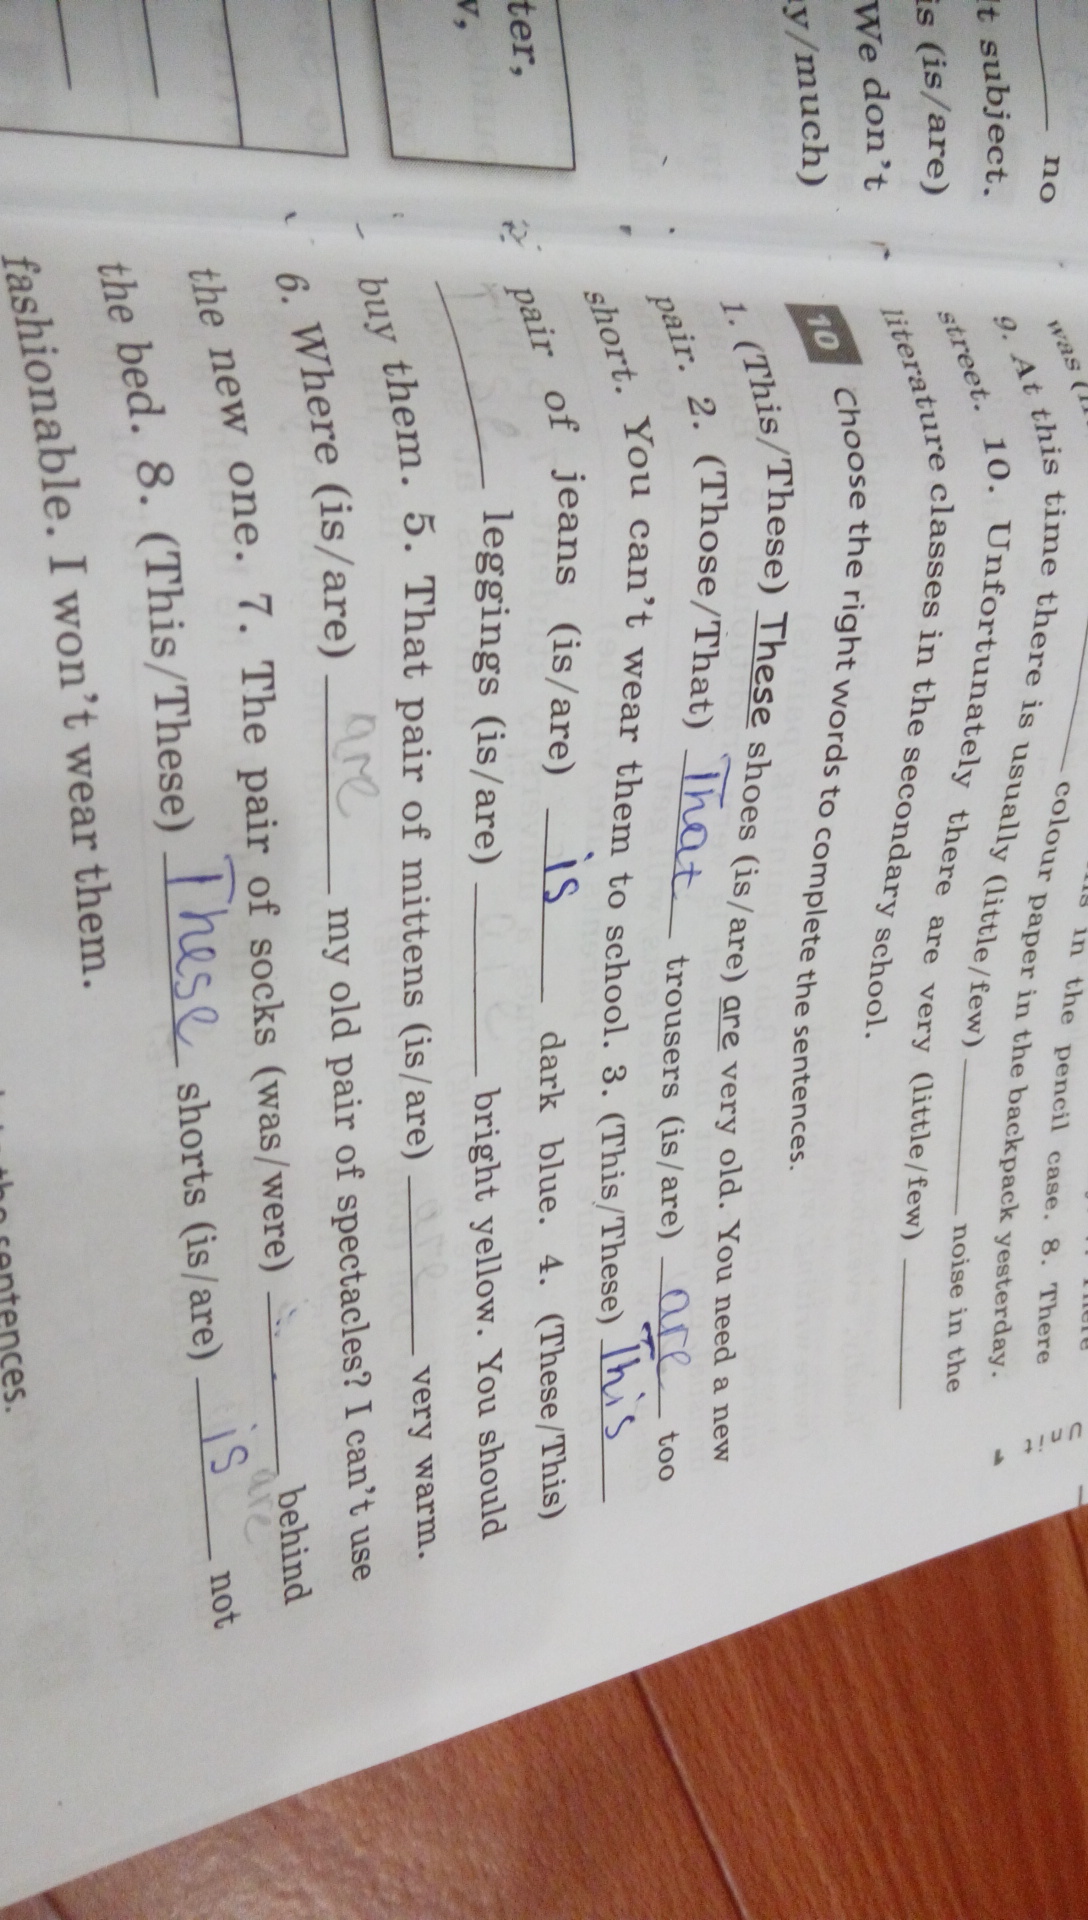 no
lt subject.
is (is/are)
We don't
y/much)
ter,
was
colour paper in the pencil case. 8. There
9. At this time there is usually (little/few) ______ noise in the
street. 10. Unfortunately there are very (little/few) ______
literature classes in the secondary school.
10 Choose the right words to complete the sentences.
1. (This/These) These shoes (is/are) are very old. You need a new
pair. 2. (Those/That) That trousers (is/are) are too
short. You can't wear them to school. 3. (This/These) This
pair of jeans (is/are) is dark blue. 4. (These/This)
______ leggings (is/are) ______ bright yellow. You should
buy them. 5. That pair of mittens (is/are) are very warm.
6. Where (is/are) are my old pair of spectacles? I can't use
the new one. 7. The pair of socks (was/were) ______ are behind
the bed. 8. (This/These) These shorts (is/are) is not
fashionable. I won't wear them.
sentences.